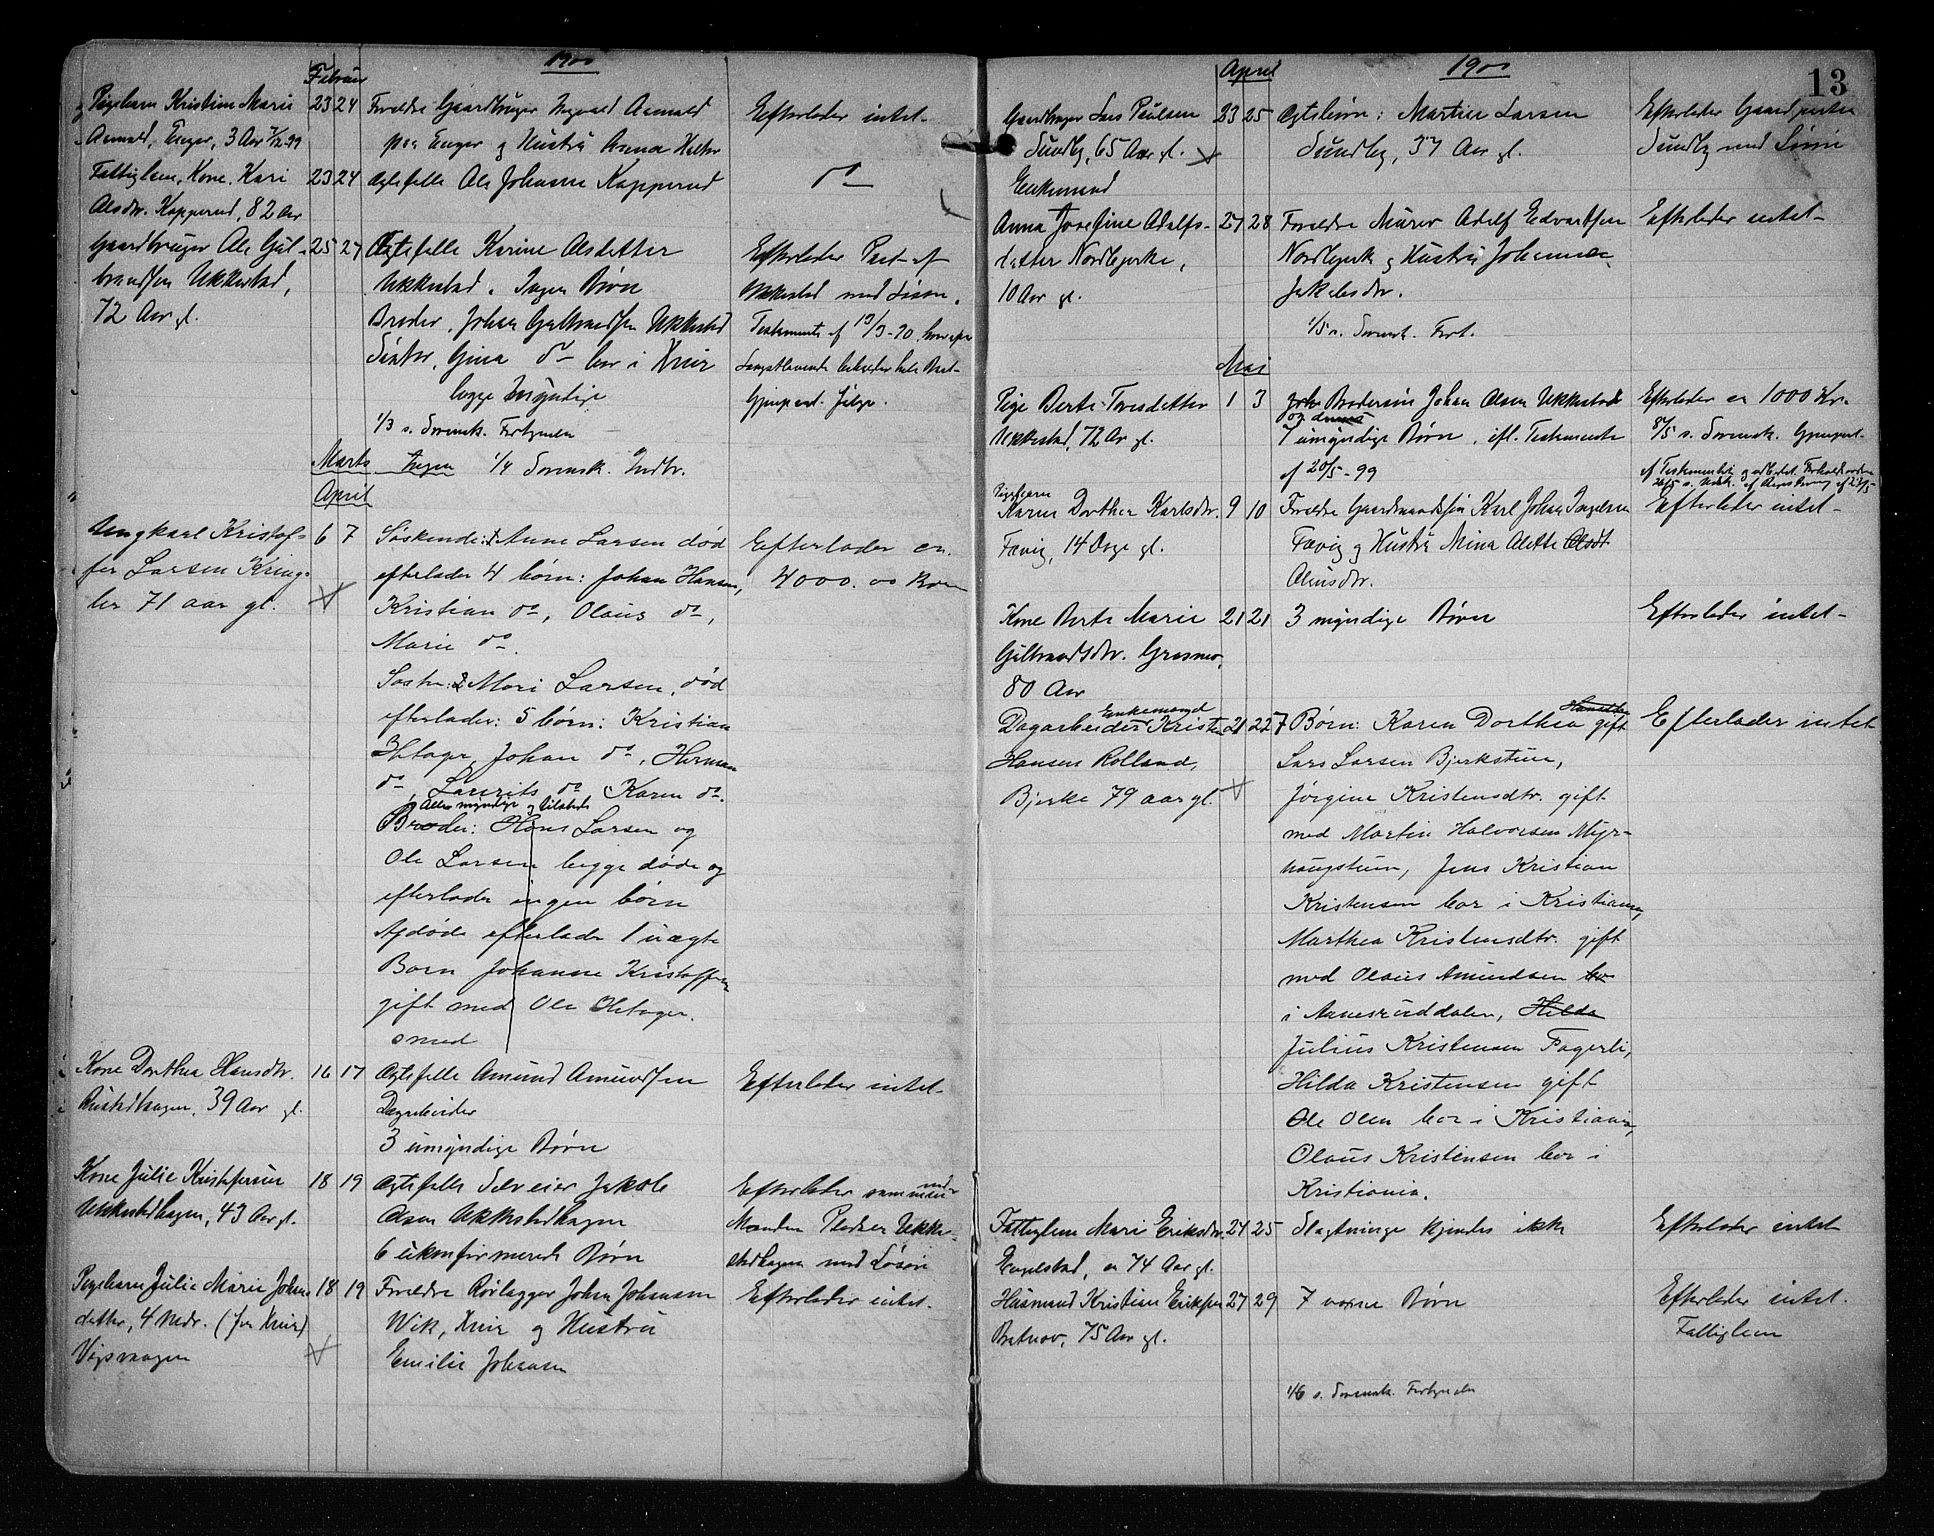 1900
Februar
Pigebarn Kristine Marie 23 24 Foreldre Gaardbruger Ingvald Aamold Efterlader intet
Aamold, Enger, 3 Aar 7/12-99 paa Enger og Hustru Anna
Fattiglem, Kone, Kari 23 24 Ægtefelle Ole Johnsen Kopperud do
Olsdtr. Kopperud, 82 Aar
Gaardbruger Ole Gul- 25 27 Ægtefelle Karine Olsdatter Efterlader Part af
brandsen Ukkestad, Ukkestad. Ingen Børn Ukkestad med Løsøre.
72 Aar gl. Broder, Johan Gulbrandsen Ukkestad Testamente af 19/3-90, hvorefter
Søster, Gina do bor i Hurdal Længstlevende beholder hele Boet
begge myndige Gjenpart følger.
1/3 s. Sorensk. Fortegnelse
Marts Ingen 1/4 Sorensk. Indbr.
April
Ungkarl Kristof- 6 7 Søskende: 1 Anne Larsen død Efterlader ca.
fer Larsen Kring- efterlader 4 børn: Johan Hansen, 4000.00 Kron
ler 71 aar gl. Kristian do, Olaus do,
Marie do.
Søster: 2 Mari Larsen, død
efterlader: 5 børn: Kristian
Johan do, Herman
do, Laurits do, Karen do.
Alle myndige og tilstede
Broder: Hans Larsen og
Ole Larsen begge døde og
efterlader ingen børn
Afdøde efterlader 1 uægte
Barn Johanne Kristoffersen
gift med Ole
smed
Kone Dorthea Hansdtr. 16 17 Ægtefelle Amund Amundsen Efterlader intet
Rustadhagen, 39 Aar gl. Dagarbeider
3 umyndige Børn
Kone Julie Kristofersen 18 19 Ægtefelle Jakob Efterlader sammen med
Ukkestadhagen, 43 Aar gl. Olsen Ukkestadhagen Manden Pladsen Ukke-
6 ukonfirmerede Børn stadhagen med Løsøre
Pigebarn Julie Marie Johns 18 19 Foreldre Rørlægger Johan Johansen Efterlader intet.
datter, 4 Mdr. Wik, og Hustru
Emilie Johnsen
13
April 1900
Gaardbruger Lars Paulsen 23 25 Ægtebørn: Martin Larsen Efterlader Gaardparten
Sundby, 65 Aar gl. Sundby, 37 Aar gl. Sundby med Løsøre
Enkemand
Anna Josefine Adolfs- 27 28 Foreldre Murer Adolf Edvardsen Efterlader intet
datter Nordbjerke, Nordbjerke og Hustru Johanne
10 Aar gl. Jakobsdtr.
1/5 s. Sorensk. Fort.
Mai
Pige Berte Toresdatter 1 3 Brodersøn Johan Olsen Ukkestad Efterlader ca 1000 Kr.
Ukkestad, 72 Aar gl. og dennes
7 umyndige Børn, ifl. Testamente 8/5 s. Sorensk. Gjenpart
af 20/5-99 af Testamentet
Pigebarn
Karen Dorthea Karlsdtr. 9 10 Foreldre Gaardmandssøn Karl Johan Efterlader intet
Fævig, 14 Dage gl. Fævig og Hustru Mina Alette
Kone Berte Marie 21 21 3 myndige Børn Efterlader intet
Gulbrandsdtr. Grasmo,
80 Aar
Enkemand
Dagarbeider Kristen 21 22 7 Børn: Karen Dorthea gift Efterlader intet
Hansen Rolland, Lars Larsen Bjerkstuen,
Bjerke 79 aar gl. Jørgine Kristensdtr. gift
med Martin Halvorsen Myr-
haugstuen, Jens Kristian
Kristensen bor i Kristiania,
Marthea Kristensdtr. gift
med Olaus Amundsen bor
i Aanesruddalen, Hilda
Julius Kristensen Fagerli,
Hilda Kristensen gift
Ole Olsen bor i Kristiania,
Olaus Kristensen bor i
Kristiania.
Fattiglem Mari Eriksdtr. 24 25 Slægtninge kjendes ikke Efterlader intet
Engelstad, ca 74 Aar gl.
Husmand Kristian Eriksen 27 29 7 voxne Børn Efterlader intet.
75 Aar gl. Fattiglem
1/6 s. Sorensk. Fortegnelse